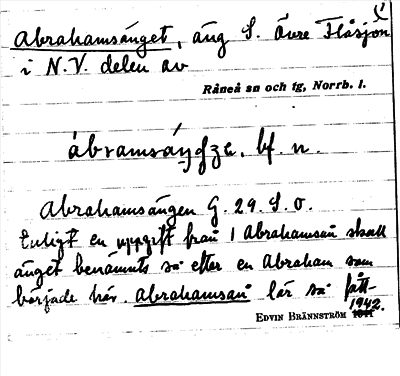 Abrahamsänget, äng S. Övre Flåsjön
i N.V. delen av
Råneå sn och tg, Norrb. l.
bf. n.
Abrahamsängen G. 29. S. O.
Enligt en uppgift från 1 Abrahamsån skall
änget benämnts så efter en Abraham som
började här. Abrahamsån lär så fått-
1942.
EDVIN BRÄNNSTRÖM 1941